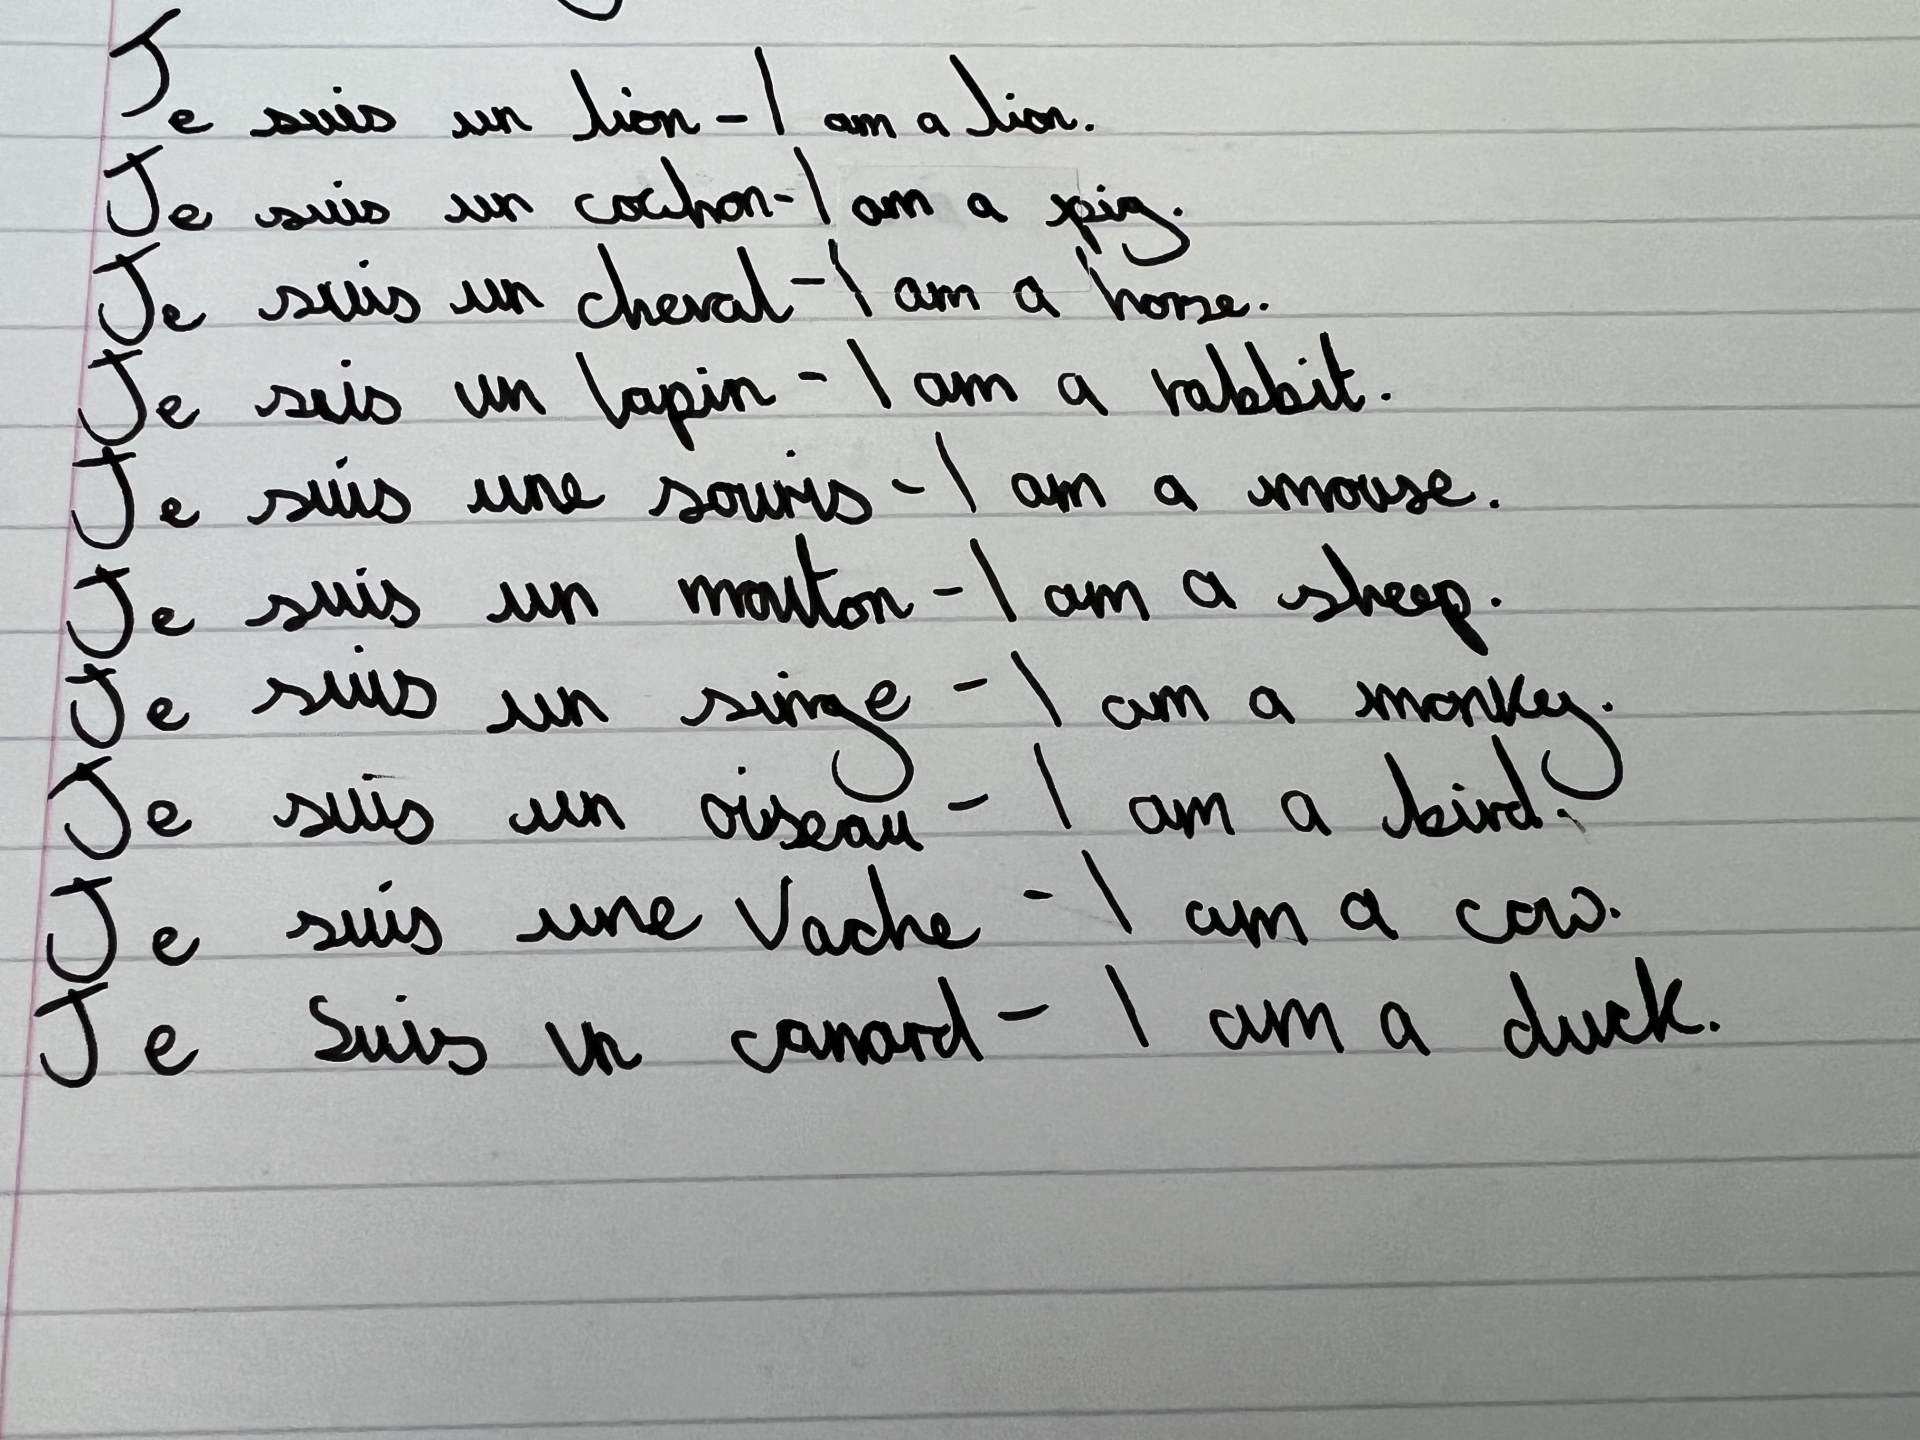 Je suis un lion - I am a lion.
Je suis un cochon - I am a pig.
Je suis un cheval - I am a horse.
Je suis un lapin - I am a rabbit.
Je suis une souris - I am a mouse.
Je suis un mouton - I am a sheep.
Je suis un singe - I am a monkey.
Je suis un oiseau - I am a bird.
Je suis une vache - I am a cow.
Je suis un canard - I am a duck.